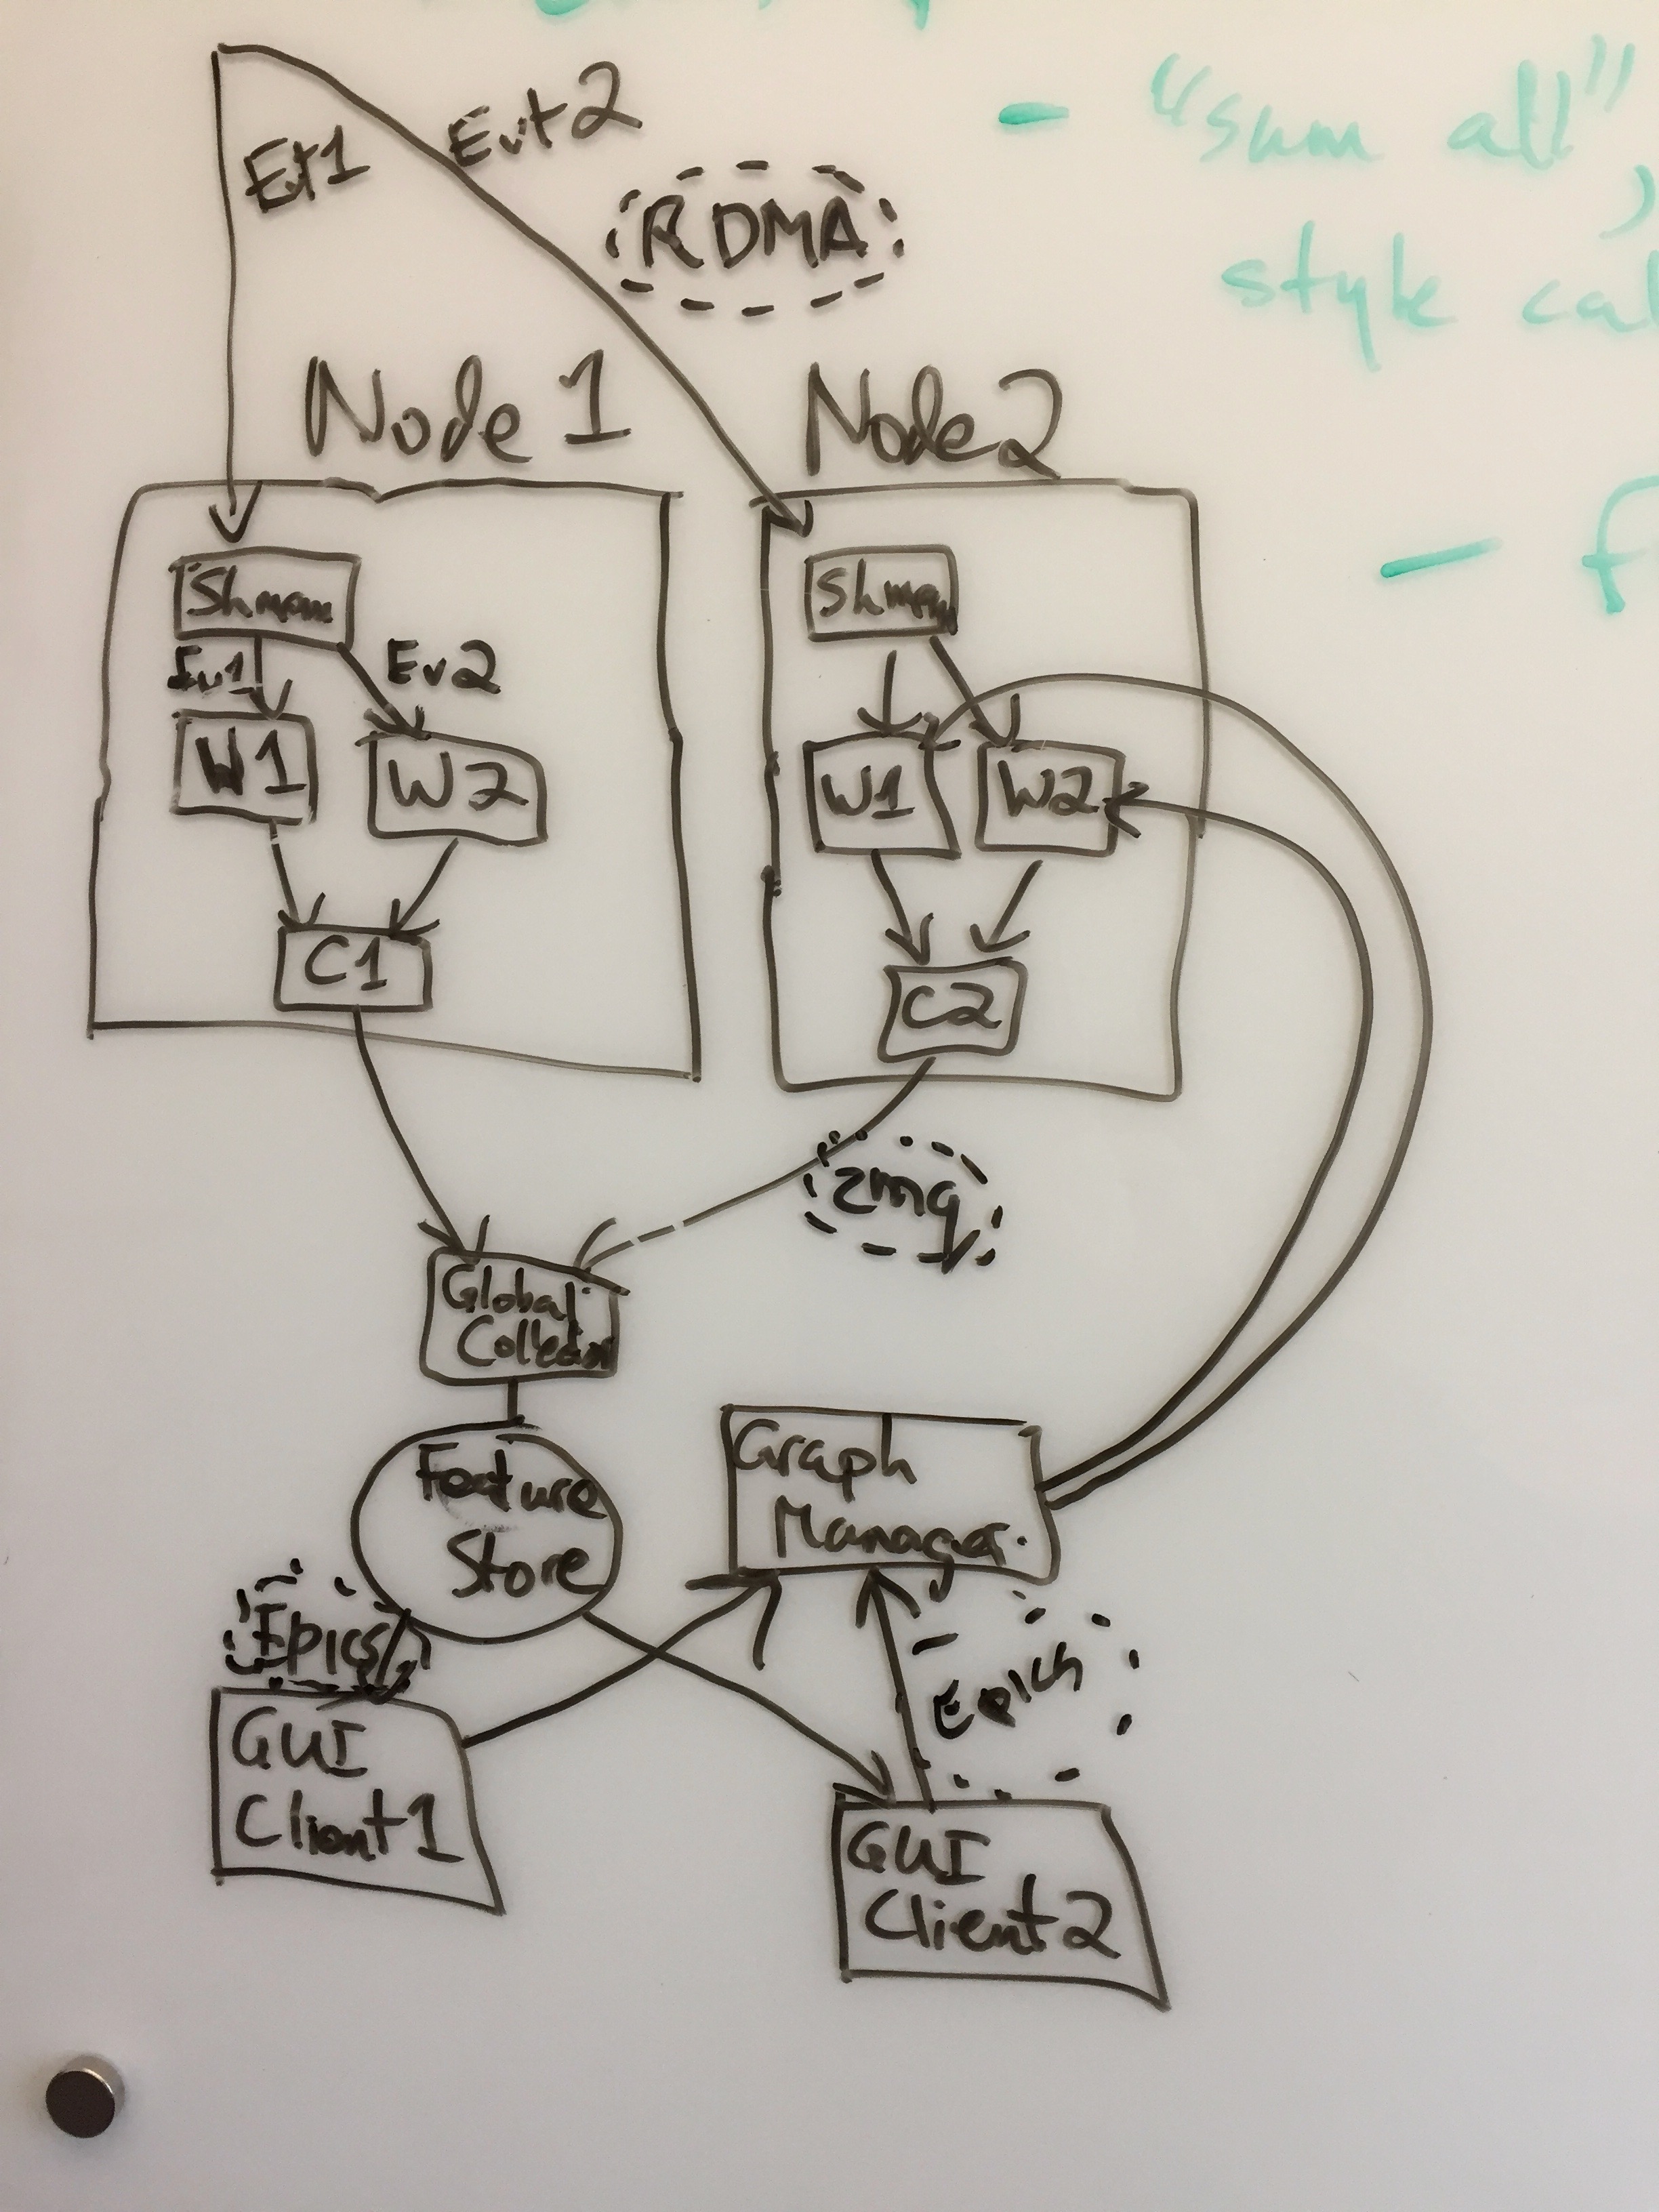 - "sum all",
style cal
- f
Et1
Evt2
RDMA
Node 1
Node 2
Shmem
Ev1
Ev2
W1
W2
C1
Shmem
W1
W2
C2
zmq
Global
Collector
Feature
Store
Graph
Manager
Epics
Epics
GUI
Client 1
GUI
Client 2